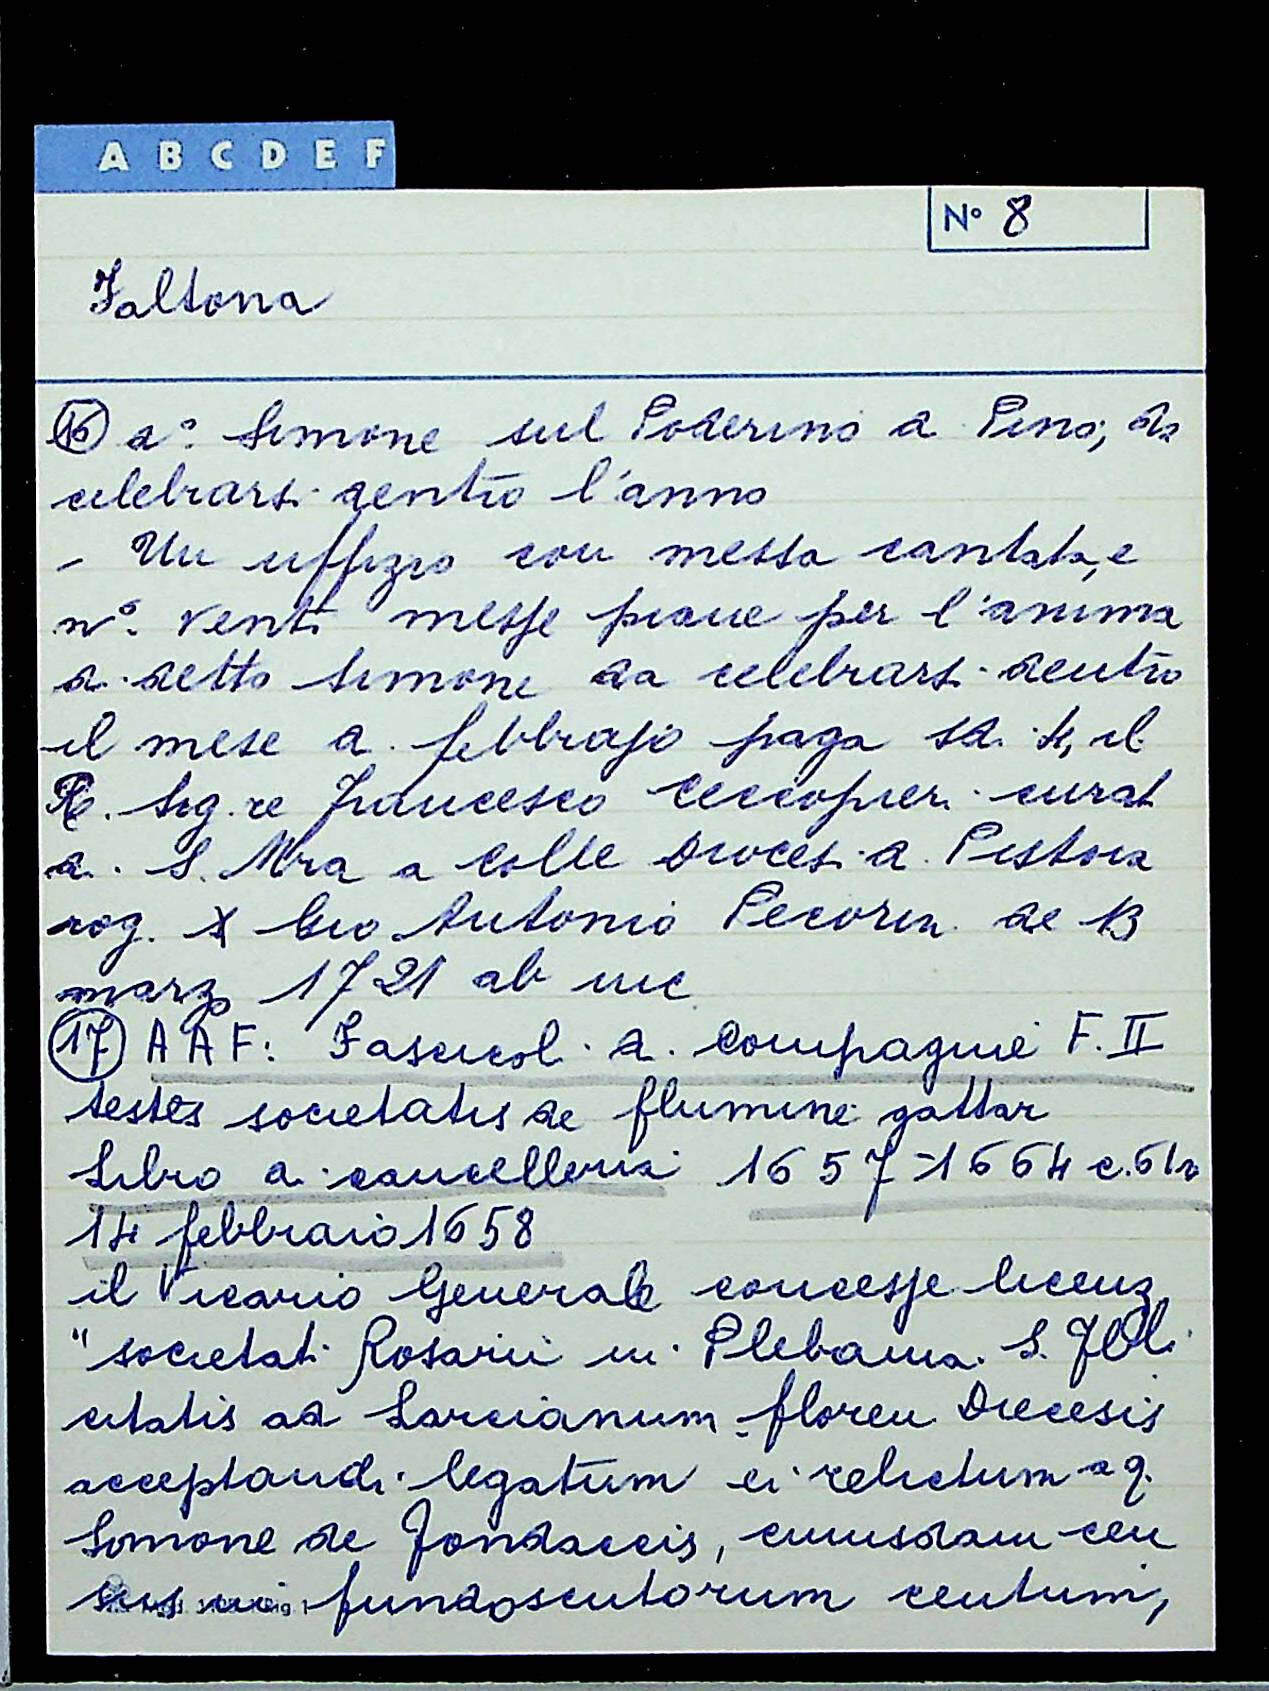 A B C D E F
N° 8
Faltona
16 di Simone sul Poderino di Pino, da
celebrarsi dentro l'anno
- Un uffizio con messa cantata, e
n°. venti messe piane per l'anima
di detto Simone da celebrarsi dentro
il mese di febbrajo paga sc. 4, il
R. Sig.re Francesco Ceccopieri curat
di S. Mra a Colle Diocesi di Pistoia
rog. X Gio Antonio Pecorini de 13
marzo 1721 ab inc
17 AAF: Fascicoli di Compagnie F. II
testes societatis de flumine gattar
Libro di cancelleria 1657-1664 c.61r
14 febbraio 1658
il Vicario Generale concesse licenz
"societati Rosarii in Plebania S.
citatis ad Sarcianum floren Diecesis
acceptandi legatum ei relictum a q.
Simone de Fondaccis, cuiusdam cen
sus in fundo scutorum centum,